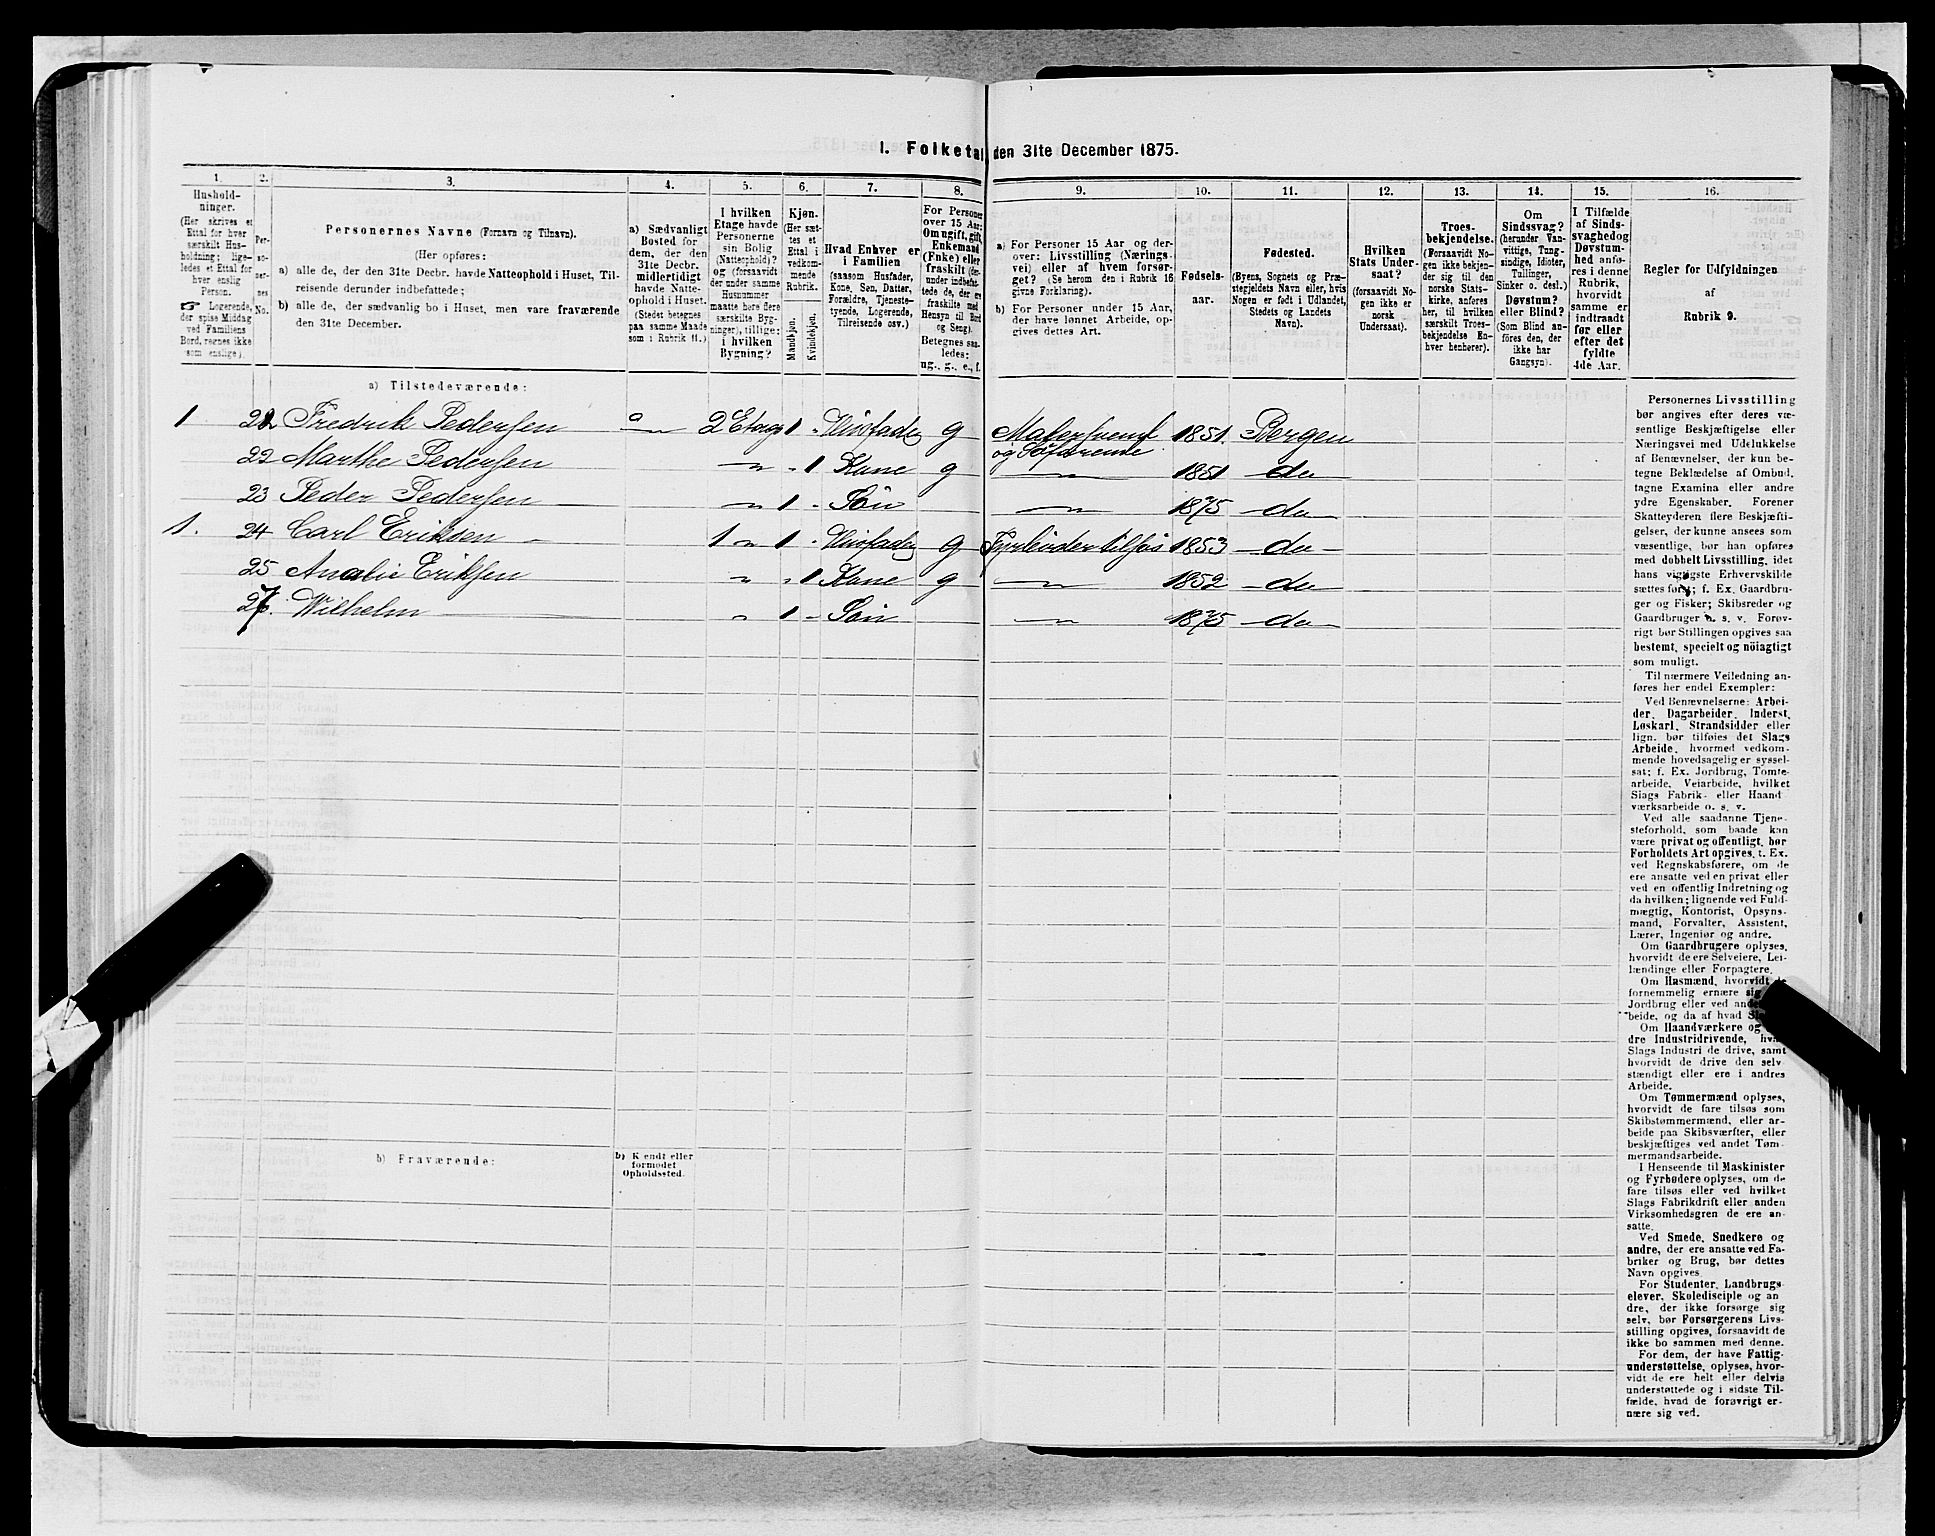 1. Folketal den 31te December 1875.
1. 2. 3. 4. 5. 6. 7. 8. 9. 10. 11. 12. 13. 14. 15. 16.
Hushold-
ninger.
(Her skrives et
Ettal for hver
særskilt Hus-
holdning; lige-
ledes et Ettal for
hver enslig
Person.
☞ Logerende,
der spise Middag
ved Familiens
Bord, regnes ikke
som enslige).
Per-
so-
ner-
nes
No.
Personernes Navne (Fornavn og Tilnavn).
(Her opføres:
a) alle de, der den 31te Decbr. havde Natteophold i Huset, Til-
reisende derunder indbefattede;
b) alle de, der sædvanlig bo i Huset, men vare fraværende
den 31te December.
a) Sædvanligt
Bosted for
dem, der den
31te Decbr.
midlertidigt
havde Natte-
ophold i Huset.
(Stedet betegnes
paa samme Maade
som i Rubrik 11.)
I hvilken
Etage havde
Personerne
sin Bolig
(Natteophold)?
og (forsaavidt
der under samme
Husnummer
maatte høre flere
særskilte Byg-
ninger), tillige:
i hvilken
Bygning?
Kjøn.
(Her sæt-
tes et
Ettal i
vedkom-
mende
Rubrik.
Mandkjøn.
Kvindekjøn.
Hvad Enhver er
i Familien
(saasom Husfader,
Kone, Søn, Datter,
Forældre, Tjeneste-
tyende, Logerende,
Tilreisende osv.)
For Personer
over 15 Aar:
Om ugift, gift,
Enkemand
(Enke) eller
fraskilt (der-
under indbefat-
tede de, der er
fraskilte med
Hensyn til Bord
og Seng).
Betegnes saa-
ledes:
ug., g., e., f.
a) For Personer 15 Aar og der-
over: Livsstilling (Nærings-
vei) eller af hvem forsør-
get? (Se herom den i Rubrik 16
givne Forklaring).
b) For Personer under 15 Aar,
der have lønnet Arbeide, op-
gives dettes Art.
Fødsels-
aar.
Fødested.
(Byens, Sognets og Præ-
stegjeldets Navn eller, hvis
Nogen er født i Udlandet,
Stedets og Landets
Navn).
Hvilken
Stats Under-
saat?
(forsaavidt No-
gen ikke er
norsk
Undersaat).
Troes-
bekjendelse.
(Forsaavidt No-
gen ikke bekjen-
der sig til den
norske Stats-
kirke, anføres
her, til hvilken
særskilt Troes-
bekjendelse En-
hver henhører).
Om
Sindssvag?
(herunder Van-
vittige, Tung-
sindige, Idioter,
Tullinger,
Sinker o. desl.)
Døvstum?
eller Blind?
(Som Blind an-
føres den, der
ikke har
Gangsyn).
I Tilfælde
af Sinds-
svaghed og
Døvstum-
hed anfø-
res i denne
Rubrik,
hvorvidt
samme er
indtraadt
før eller
efter det
fyldte
4de Aar.
Regler for Udfyldningen
af
Rubrik 9.
a) Tilstedeværende:
1 Fredrik Pedersen 2 Etage 1 - Huusfader g Malersvend 1851. Bergen
og Søfarende
22 Marthe Pedersen - 1 Kone g 1851 do
23 Peder Pedersen 1 - Søn 1875 do
1. 24 Carl Eriksen 1 1 - Huusfader g Fyrbøder tilsøs 1853 do
25 Amalie Eriksen 1 Kone g 1852 do
Wilhelm 1 - Søn 1875 do
b) Fraværende:
b) Kjendt eller
formodet
Opholdssted.
Personernes Livsstilling
bør angives efter deres væ-
sentlige Beskjæftigelse eller
Næringsvei med Udelukkelse
af Benævnelser, der kun be-
tegne Beklædelse af Ombud,
tagne Examina eller andre
ydre Egenskaber. Forener
Skatteyderen flere Beskjæfti-
gelser, der kunne ansees som
væsentlige, bør han opføres
med dobbelt Livsstilling, idet
hans vigtigste Erhvervskilde
sættes først; f. Ex. Gaardbru-
ger og Fisker; Skibsreder og
Gaardbruger o. s. v. Forøv-
rigt bør Stillingen opgives saa
bestemt, specielt og nöiagtigt
som muligt.
Til nærmere Veiledning an-
føres her endel Exempler:
Ved Benævnelserne: Arbei-
der, Dagarbeider, Inderst,
Løskarl, Strandsidder eller
lign. bør tilføies det Slags
Arbeide, hvormed vedkom-
mende hovedsagelig er syssel-
sat; f. Ex. Jordbrug, Tomte-
arbeide, Veiarbeide, hvilket
Slags Fabrik- eller Haand
værksarbeide o. s. v.
Ved alle saadanne Tjene-
steforhold, som baade kan
være privat og offentligt, bør
Forholdets Art opgives, t. Ex.
ved Regnskabsførere, om de
ere ansatte ved en privat eller
ved en offentlig Indretning og
da hvilken; lignende ved Fuld-
mægtig, Kontorist, Opsyns-
mand, Forvalter, Assistent,
Lærer, Ingeniør og andre.
Om Gaardbrugere oplyses,
hvorvidt de ere Selveiere, Lei-
lændinge eller Forpagtere.
Om Husmænd, hvorvidt de
fornemmelig ernære sig
Jordbrug eller ved
beide, og da af hvad
Om Haandværkere og
dre Industridrivende,
Slags Industri de drive, samt
hvorvidt de drive den selv-
stændigt eller ere i andres
Arbeide.
Om Tømmermænd oplyses,
hvorvidt de fare tilsøs som
Skibstømmermænd, eller ar-
beide paa Skibsværfter, eller
beskjæftiges ved andet Tøm-
mermandsarbeide.
I Henseende til Maskinister
og Fyrbødere oplyses, om de
fare tilsøs eller ved hvilket
Slags Fabrikdrift eller anden
Virksomhedsgren de ere an-
satte.
Ved Smede, Snedkere og
andre, der ere ansatte ved Fa-
briker og Brug, bør dettes
Navn opgives.
For Studenter, Landbrugs-
elever, Skoledisciple og an
dre, der ikke forsørge sig
selv, bør Forsørgerens Livs-
stilling opgives, forsaavidt de
ikke bo sammen med denne.
For dem, der have Fattig-
understøttelse, oplyses, hvor-
vidt de ere helt eller delvis
understøttede og i sidste Til-
fælde, hvad de forøvrigt er-
nære sig ved.